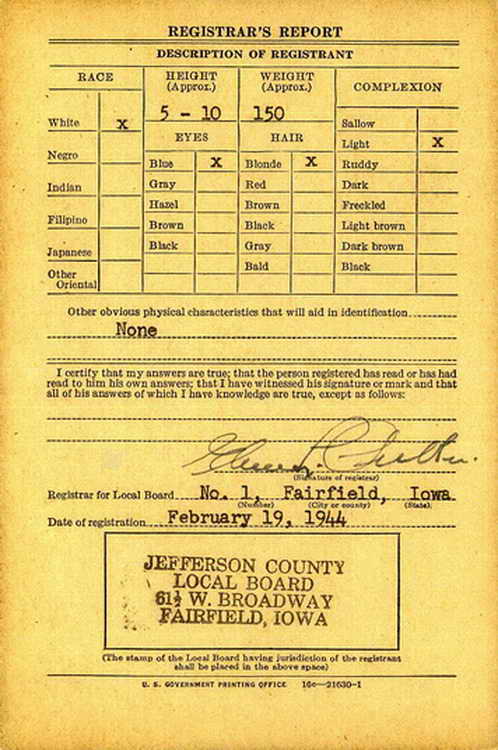 REGISTRAR'S REPORT
DESCRIPTION OF REGISTRANT
RACE
HEIGHT (Approx.)
WEIGHT (Approx.)
COMPLEXION
5 - 10
150
White X
Negro
Indian
Filipino
Japanese
Other Oriental
EYES
Blue X
Gray
Hazel
Brown
Black
HAIR
Blonde X
Red
Brown
Black
Gray
Bald
Sallow
Light X
Ruddy
Dark
Freckled
Light brown
Dark brown
Black
Other obvious physical characteristics that will aid in identification
None
I certify that my answers are true; that the person registered has read or has had
read to him his own answers; that I have witnessed his signature or mark and that
all of his answers of which I have knowledge are true, except as follows:
(Signature of registrar)
Registrar for Local Board No. 1, Fairfield, Iowa
(Number) (City or county) (State)
Date of registration February 19, 1944
JEFFERSON COUNTY
LOCAL BOARD
61½ W. BROADWAY
FAIRFIELD, IOWA
(The stamp of the Local Board having jurisdiction of the registrant
shall be placed in the above space)
U. S. GOVERNMENT PRINTING OFFICE 16—21630-1